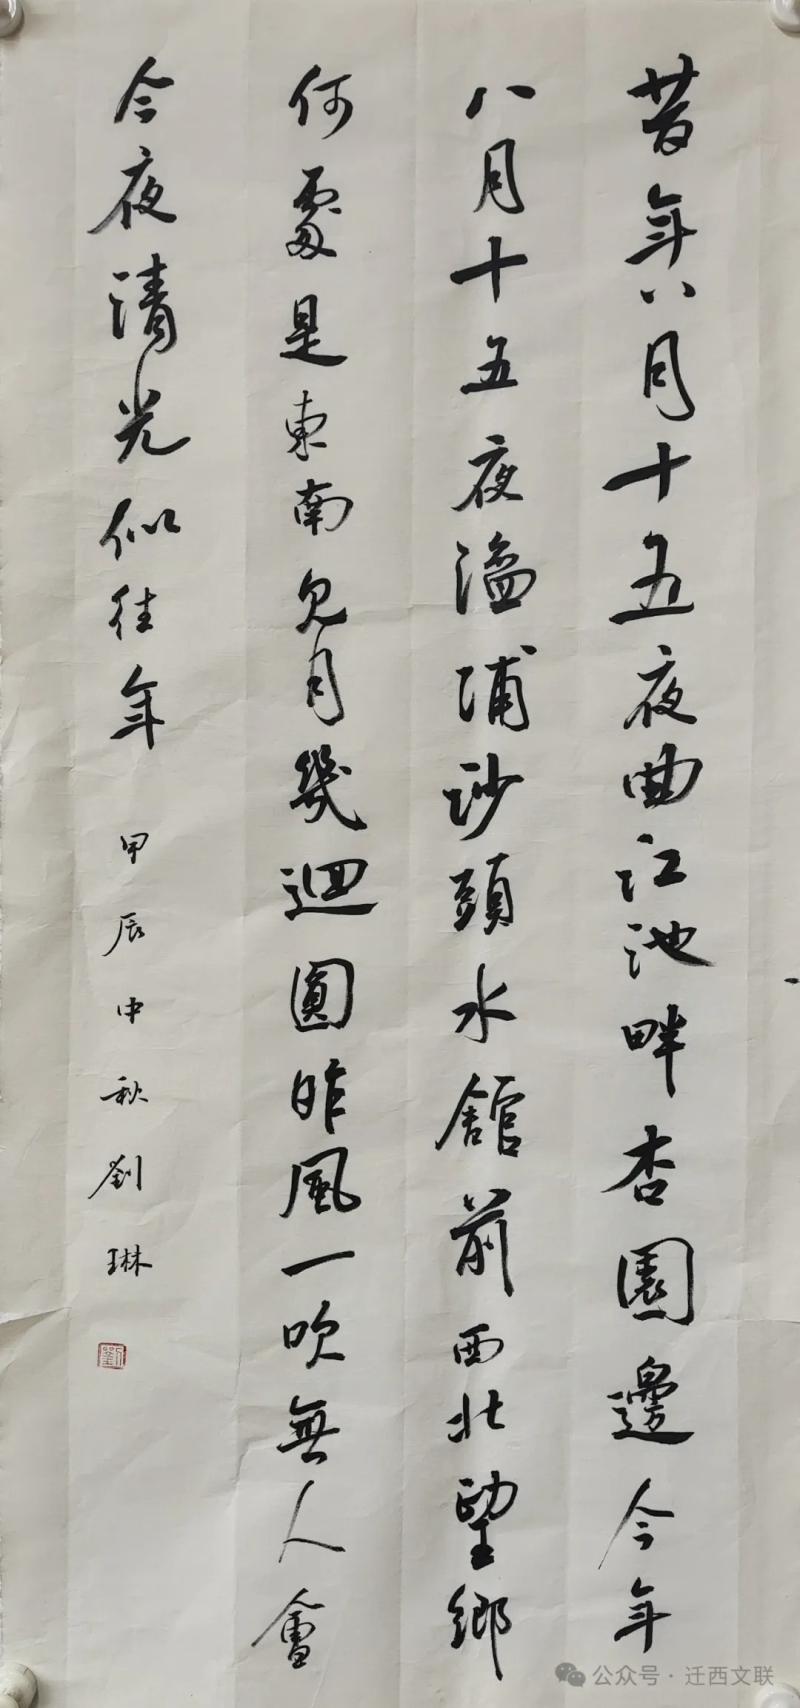 昔年八月十五夜曲江池畔杏園邊今年
八月十五夜湓浦沙頭水館前西北望鄉
何處是東南見月幾迴圓昨風一吹無人會
今夜清光似往年 甲辰中秋劉琳
劉
公众号·迁西文联